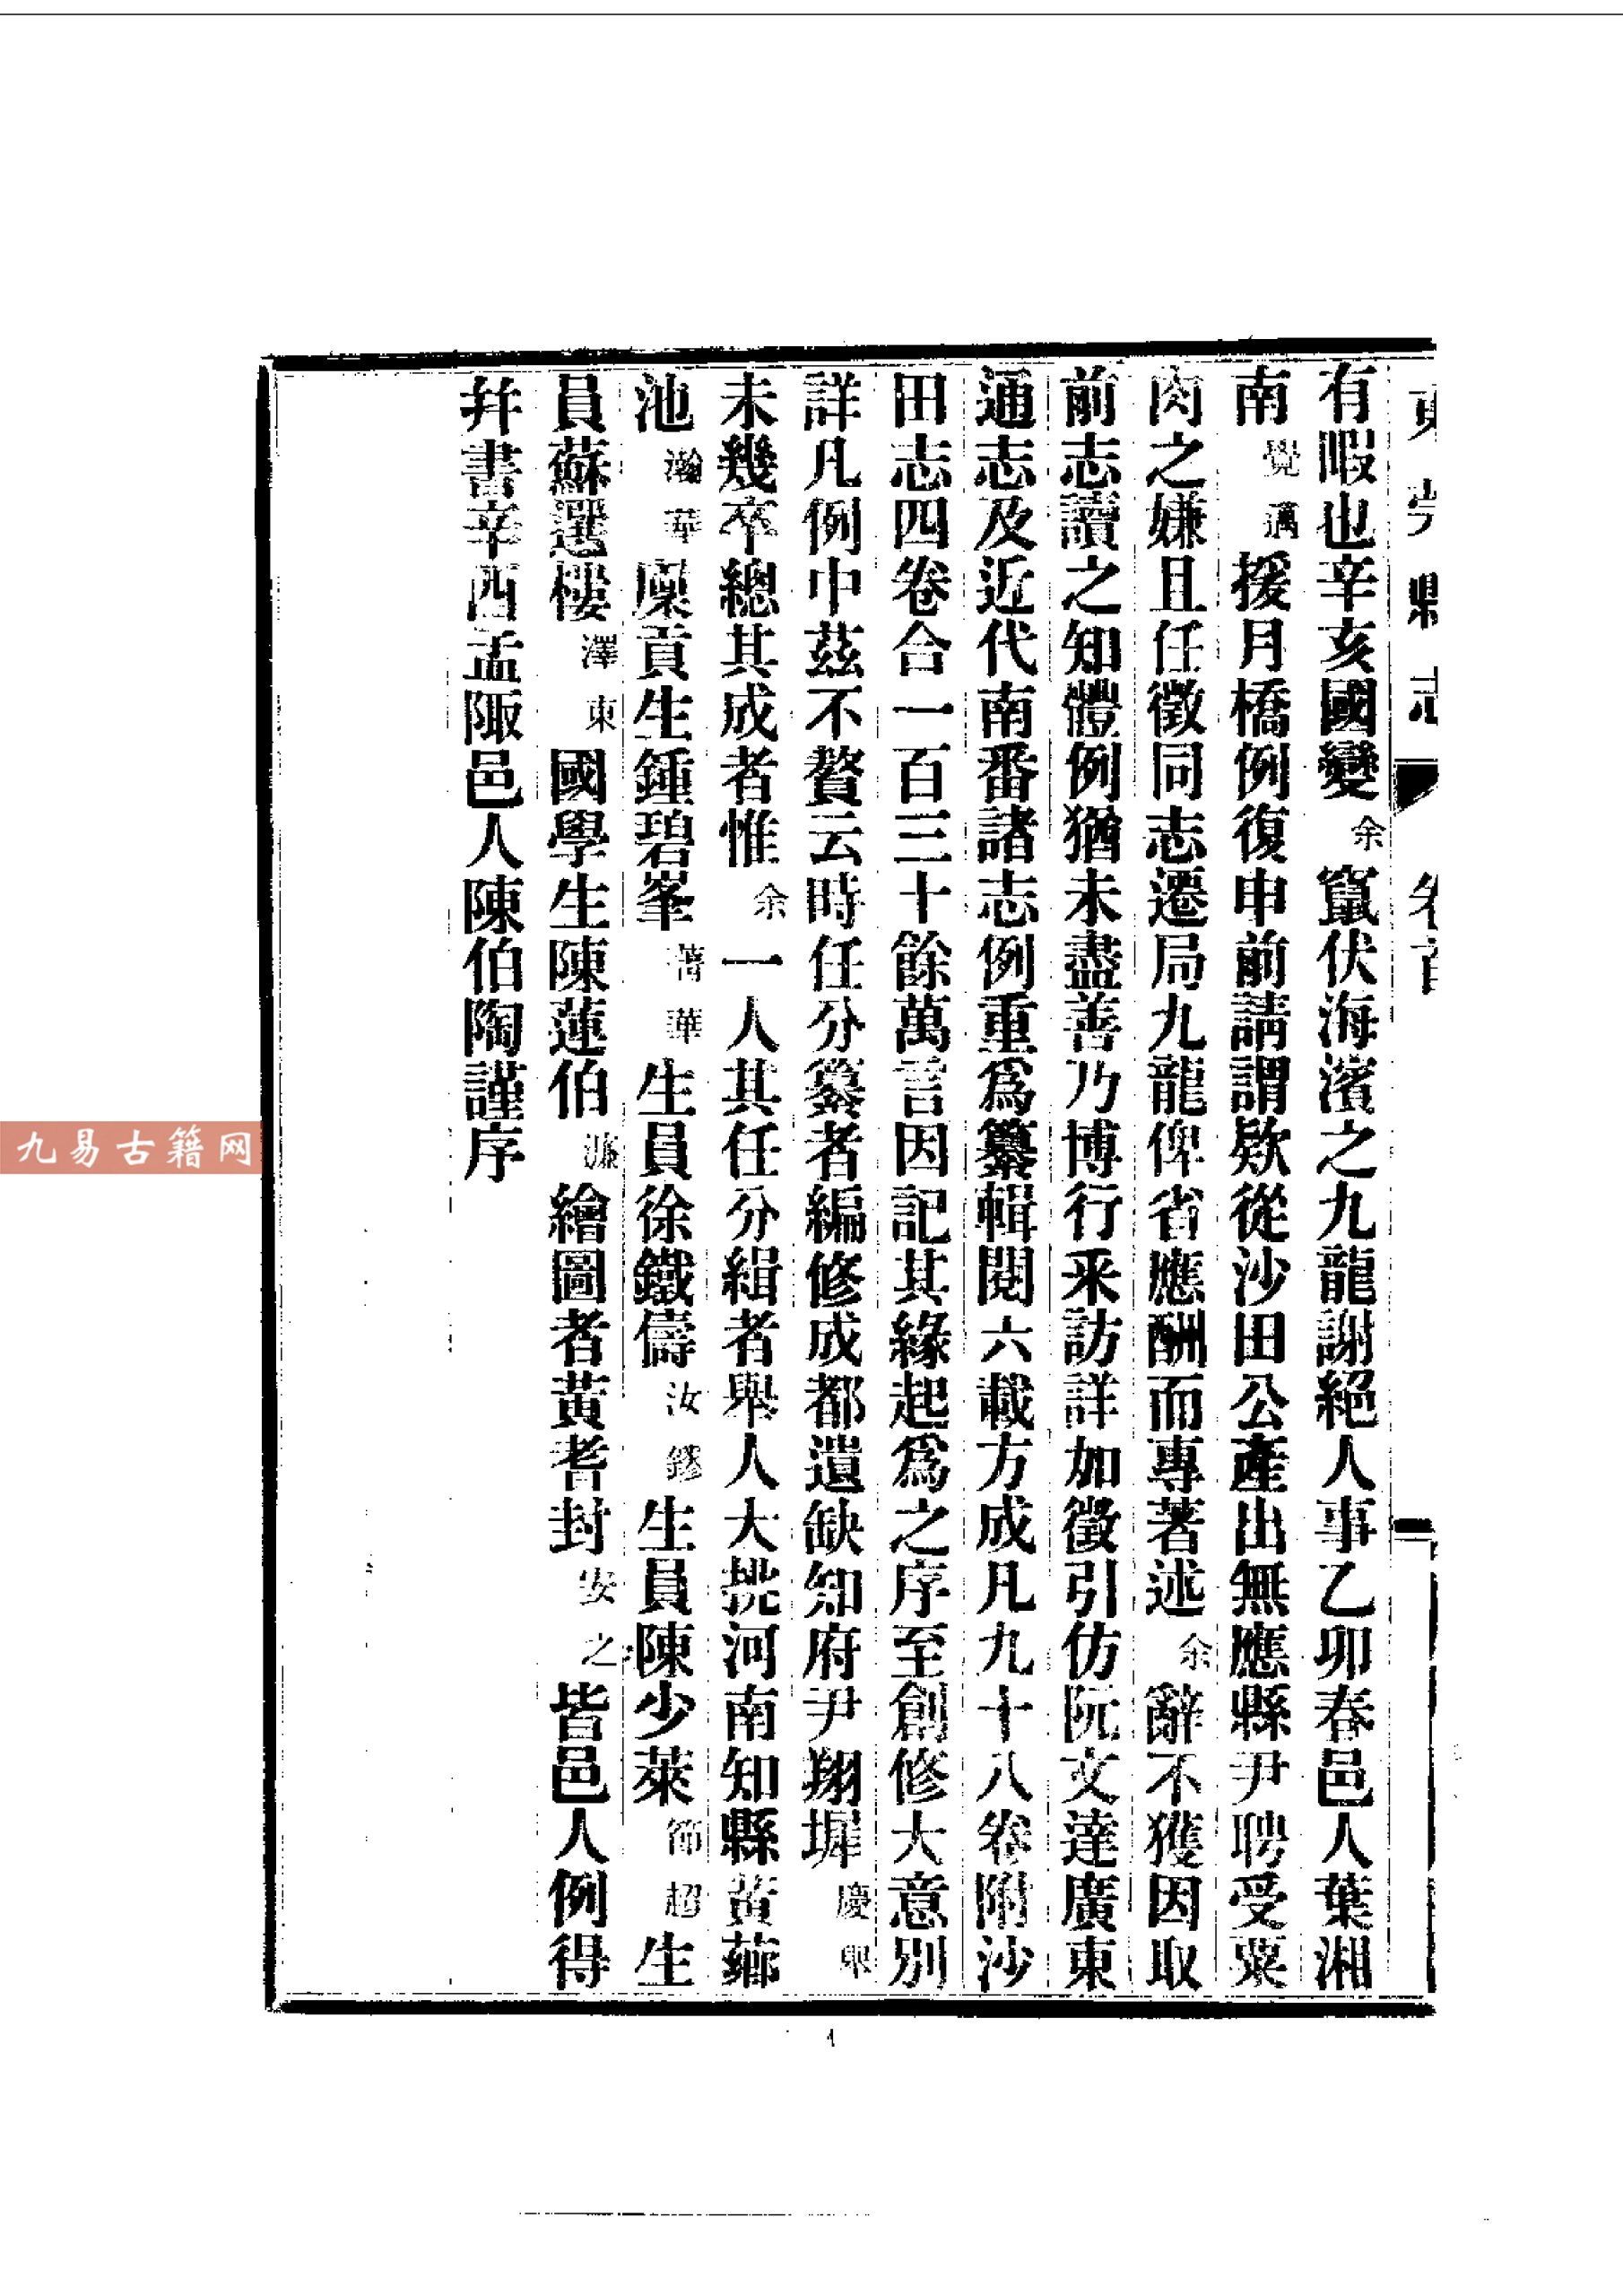 東莞縣志 卷首
有暇也辛亥國變余竄伏海濱之九龍謝絕人事乙卯春邑人葉湘
南覺邁援月橋例復申前請謂欵從沙田公產出無應縣尹聘受粟
肉之嫌且任徵同志遷局九龍俾省應酬而專著述余辭不獲因取
前志讀之知體例猶未盡善乃博行采訪詳加徵引仿阮文達廣東
通志及近代南番諸志例重爲纂輯閱六載方成凡九十八卷附沙
田志四卷合一百三十餘萬言因記其緣起爲之序至創修大意別
詳凡例中茲不贅云時任分纂者編修成都遺缺知府尹翔墀慶舉
未幾卒總其成者惟余一人其任分緝者舉人大挑河南知縣黃薌
池瀚華廩貢生鍾碧峯菁華生員徐鐵儔汝鏐生員陳少萊節超生
員蘇選樓澤東國學生陳蓮伯濂繪圖者黃耆封安之皆邑人例得
幷書辛酉孟陬邑人陳伯陶謹序
九易古籍网